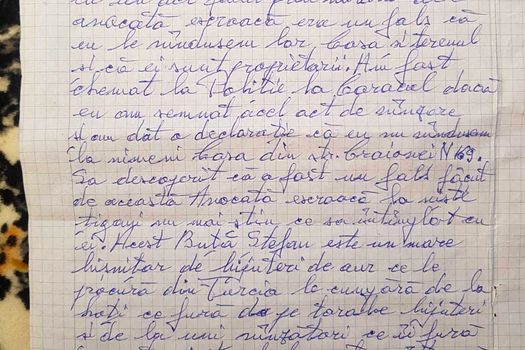 anocată escroacă era un fals că
eu le vîndusem lor, casa si terenul
si că ei sunt proprietarii. Am fost
chemat la Politie la Caracal dacă
eu am semnat acel act de vînzare
si am dat o declaratie ca eu nu vîndusem
la nimeni casa din str. Craiovei N 169.
Sa descoperit ca a fost un fals făcut
de aceasta Anocată escroacă la niste
tigani nu mai stiu ce sa întînplat cu
ei. Acest Buta Stefan este un mare
bisnitar de bijuteri de aur ce le
procură din Turcia le cunpără de la
hoti ce fura de pe tarabe bijuteri
si de la uni vînzatori ce îi fură